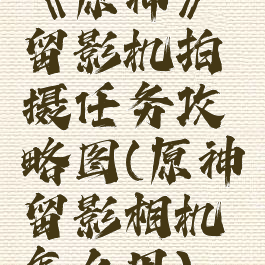 《原神》
留影机拍
摄任务攻
略图(原神
留影相机
怎么用)